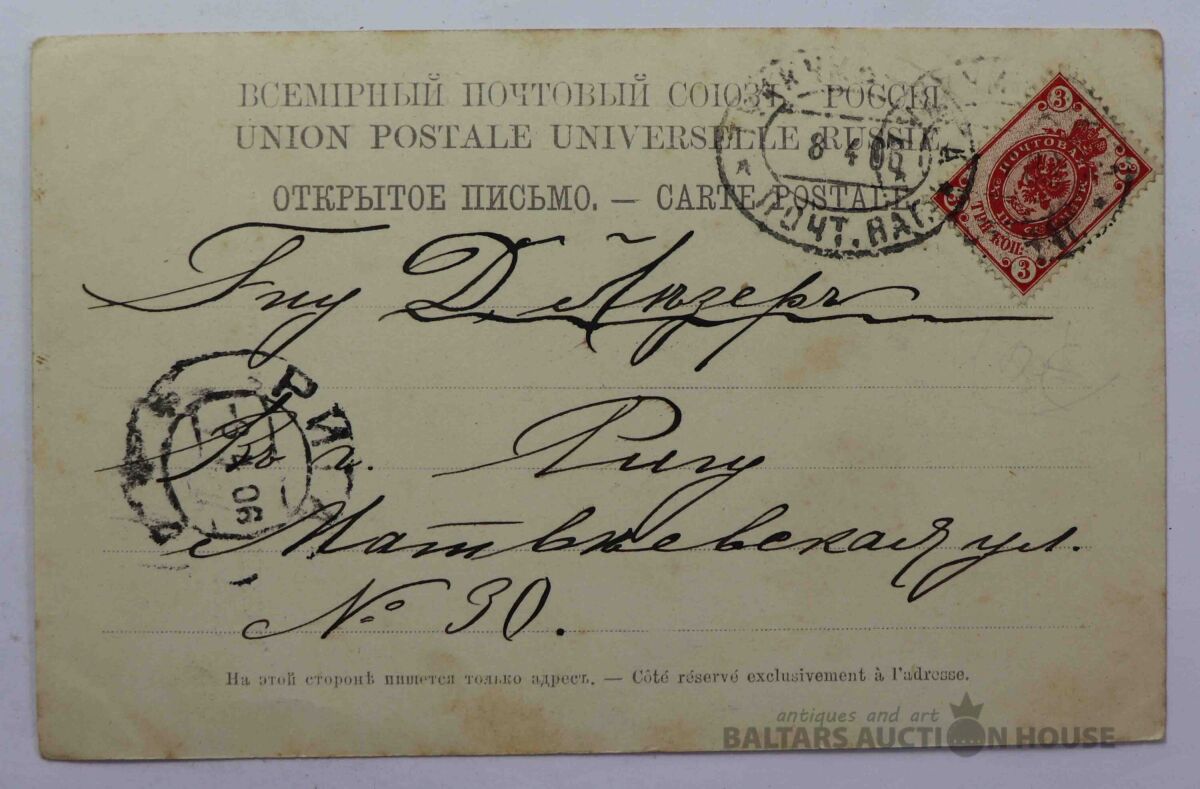 ВСЕМІРНЫЙ ПОЧТОВЫЙ СОЮЗЪ. РОССІЯ
UNION POSTALE UNIVERSELLE RUSSIE
ОТКРЫТОЕ ПИСЬМО. — CARTE POSTALE.
8 4 06
ПОЧТ. ВАГ.
3
3
3
ПОЧТОВАЯ МАРКА
ТРИ КОП.
Гну Д.
Въ г. Ригу
Матвѣевская ул.
№ 30.
РИГА
06
На этой сторонѣ пишется только адресъ. — Côté réservé exclusivement à l'adresse.
antiques and art
BALTARS AUCTION HOUSE